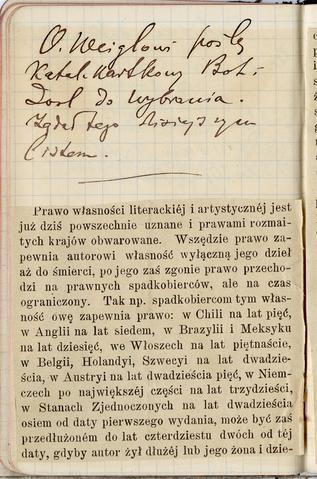 O. Weiglowi posłę
Katal. Kartkowy Bot.
do wybrania.
tego
listem.
Prawo własności literackiéj i artystycznéj jest
już dziś powszechnie uznane i prawami rozmai-
tych krajów obwarowane. Wszędzie prawo za-
pewnia autorowi własność wyłączną jego dzieł
aż do śmierci, po jego zaś zgonie prawo przecho-
dzi na prawnych spadkobierców, ale na czas
ograniczony. Tak np. spadkobiercom tym włas-
ność owę zapewnia prawo: w Chili na lat pięć,
w Anglii na lat siedem, w Brazylii i Meksyku
na lat dziesięć, we Włoszech na lat piętnaście,
w Belgii, Holandyi, Szwecyi na lat dwadzie-
ścia, w Austryi na lat dwadzieścia pięć, w Niem-
czech po największéj części na lat trzydzieści,
w Stanach Zjednoczonych na lat dwadzieścia
osiem od daty pierwszego wydania, może być zaś
przedłużoném do lat czterdziestu dwóch od téj
daty, gdyby autor żył dłużéj lub jego żona i dzie-